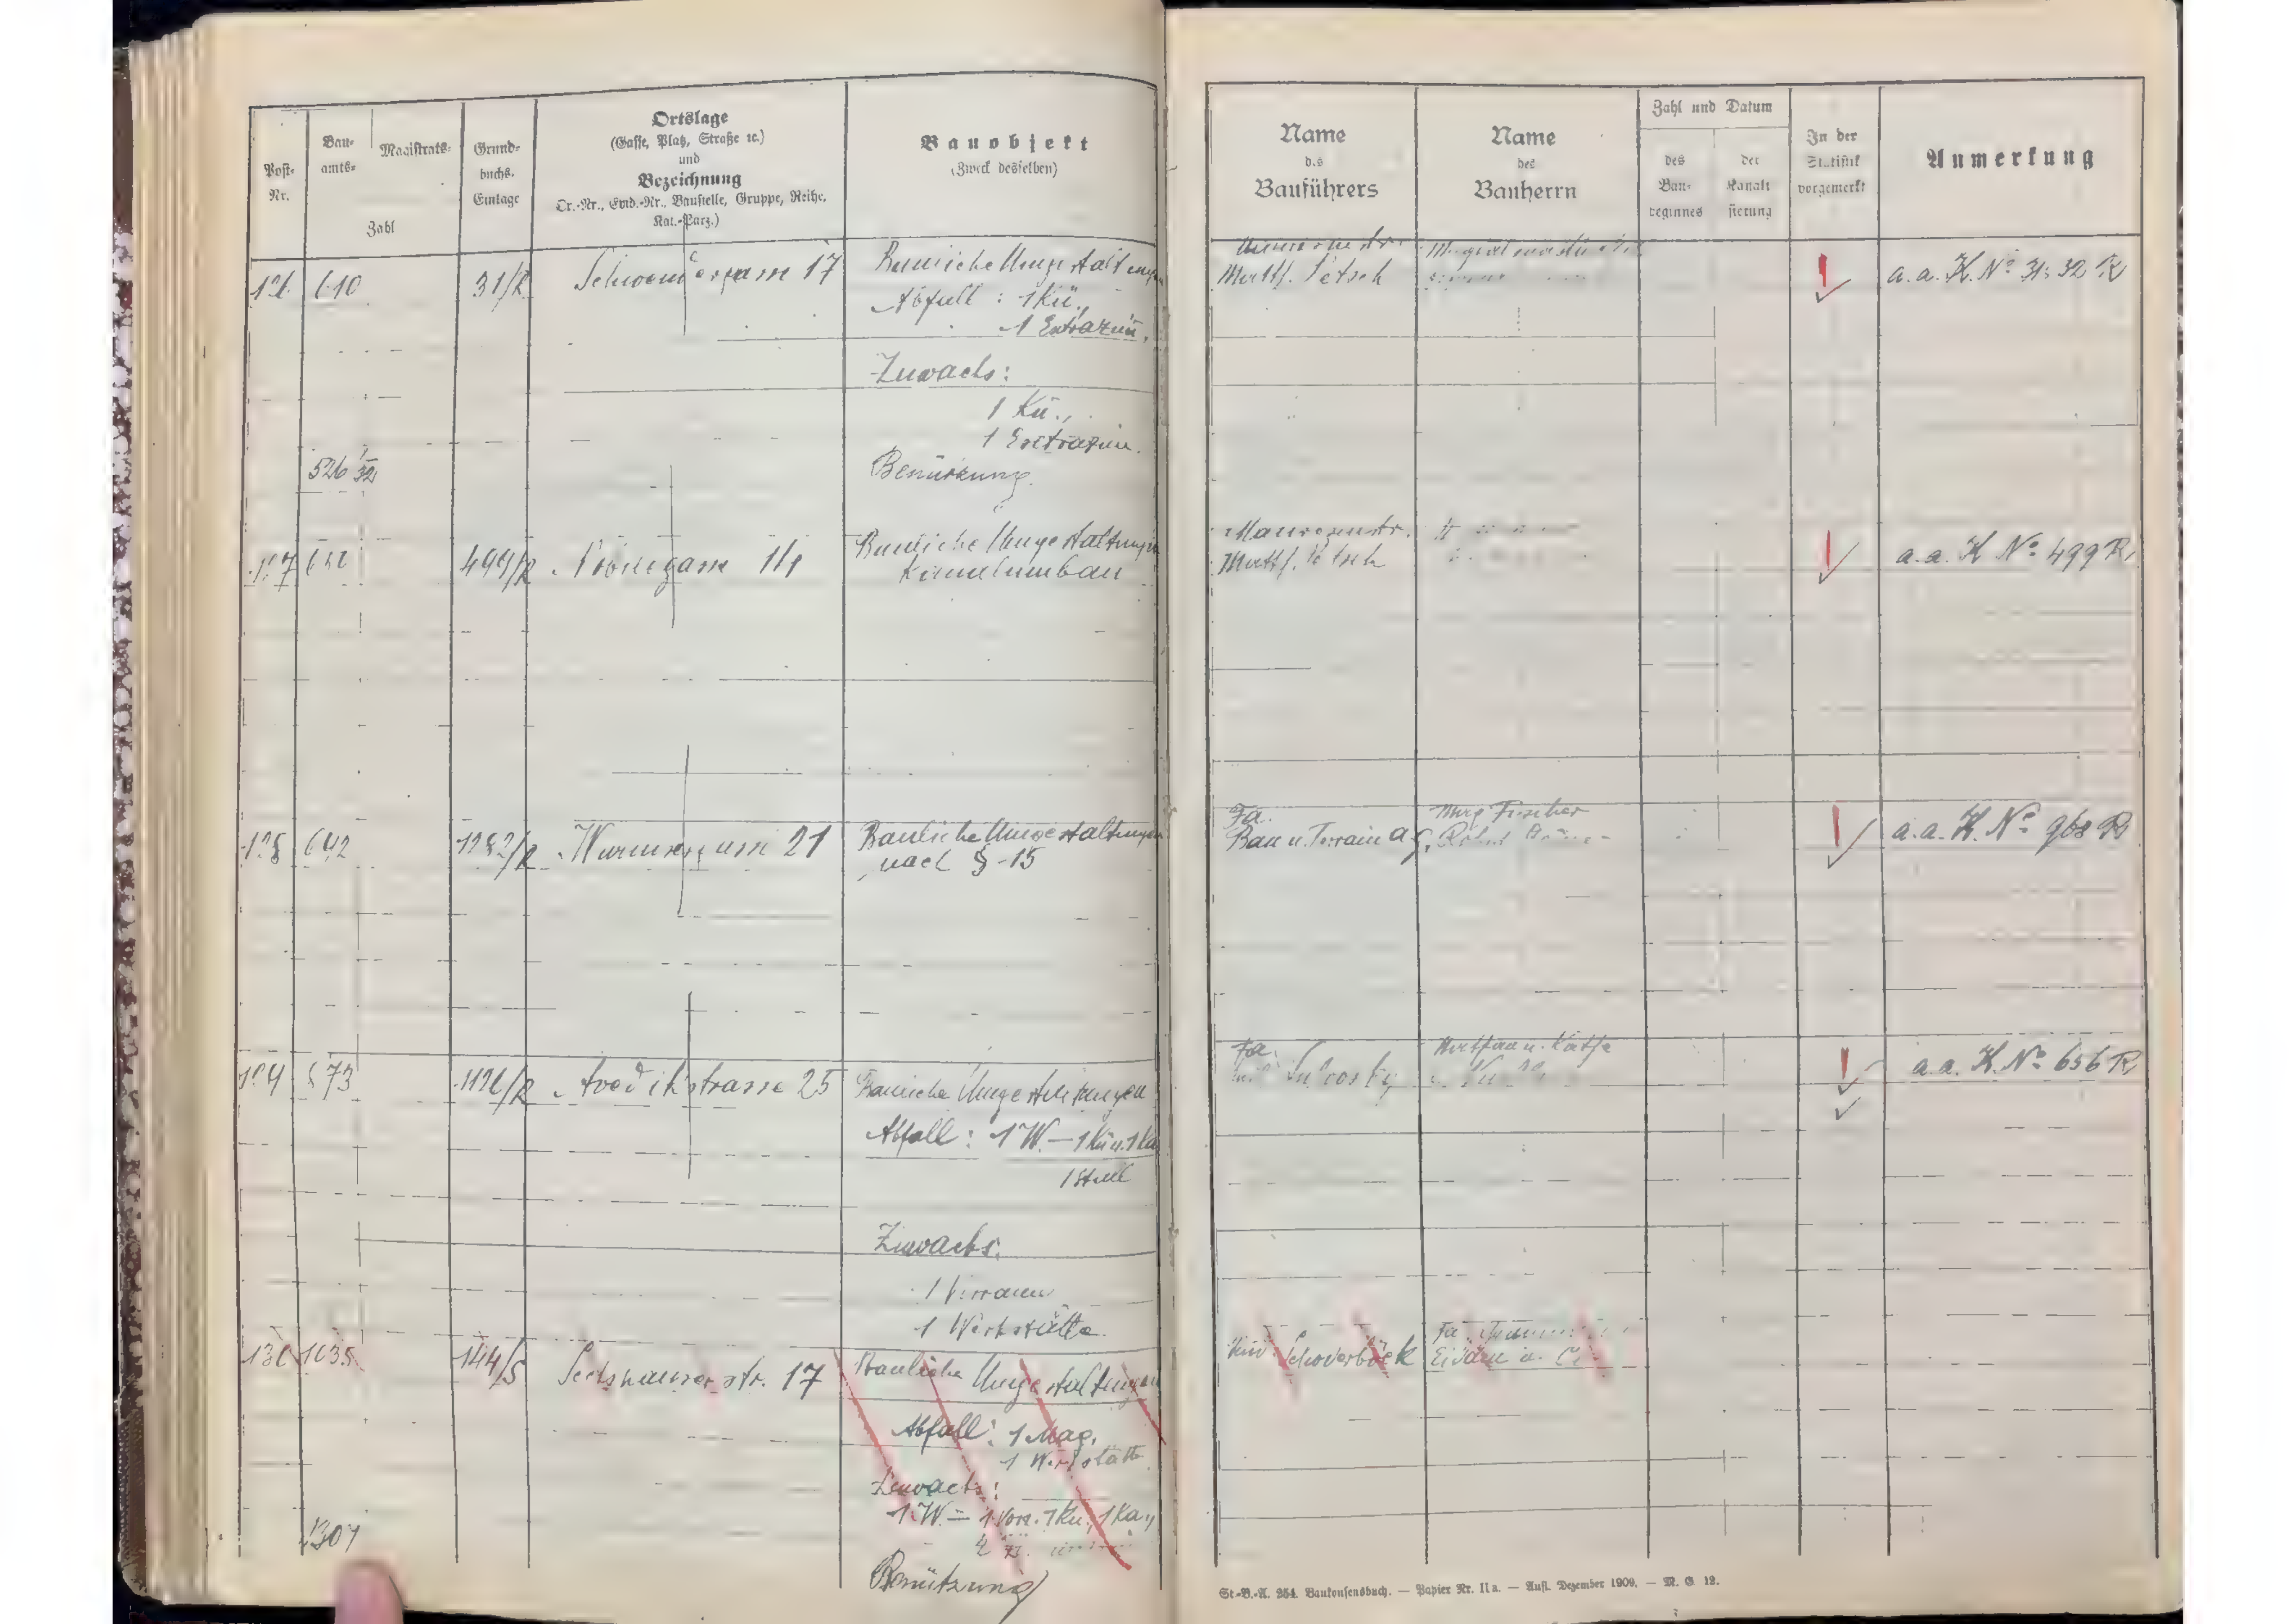 Post-
Nr.
Bau-
amts-
Magistrats-
Zahl
Grund-
buchs-
Einlage
Ortslage
(Gasse, Platz, Straße ꝛc.)
und
Bezeichnung
Or.-Nr., Evid.-Nr., Baustelle, Gruppe, Reihe,
Kat.-Parz.)
Bauobjekt
(Zweck desselben)
Name
des
Bauführers
Name
des
Bauherrn
Zahl und Datum
des
Bau-
beginnes
der
Kanali
sierung
In der
Statistik
vorgemerkt
Anmerkung
126 610 31/R 17 Bauliche Umgestaltungen
Abfall: 1 Kü.,
1 Extrazim.
Zuwachs:
1 Kü.,
1 Extrazim.
526/32 Benützung
Matth. Petsch a.a. K. Nº 31; 32 R
127 499/R Bauliche Umgestaltungen
Kanalumbau
Maurermstr.
Matth. Petsch a.a. K Nº 499 R
128 642 1282/R Wurmsergasse 21 Bauliche Umgestaltungen
nach § 15
Fa. Fischer
Bau u. Terrain A.G. a.a. K. Nº 968 R
129 673 1126/R Avedikstrasse 25 Bauliche Umgestaltungen
Abfall: 1 W. — 1 Kü u. 1 Ka
1 Stall
Zuwachs:
1 Vorraum
1 Werkstätte
Fa.
a.a. K. Nº 656 R
130 1035 144/S Sechshauser str. 17 Bauliche Umgestaltungen
Abfall: 1 Mag.
1 Werkstätte
Zuwachs:
1 W. — 1 Vorz. 1 Kü., 1 Ka.,
Benützung
1307
Fa.
St.-B.-A. 254. Baukonsensbuch. — Papier Nr. IIa. — Aufl. Dezember 1909. — M. G 12.